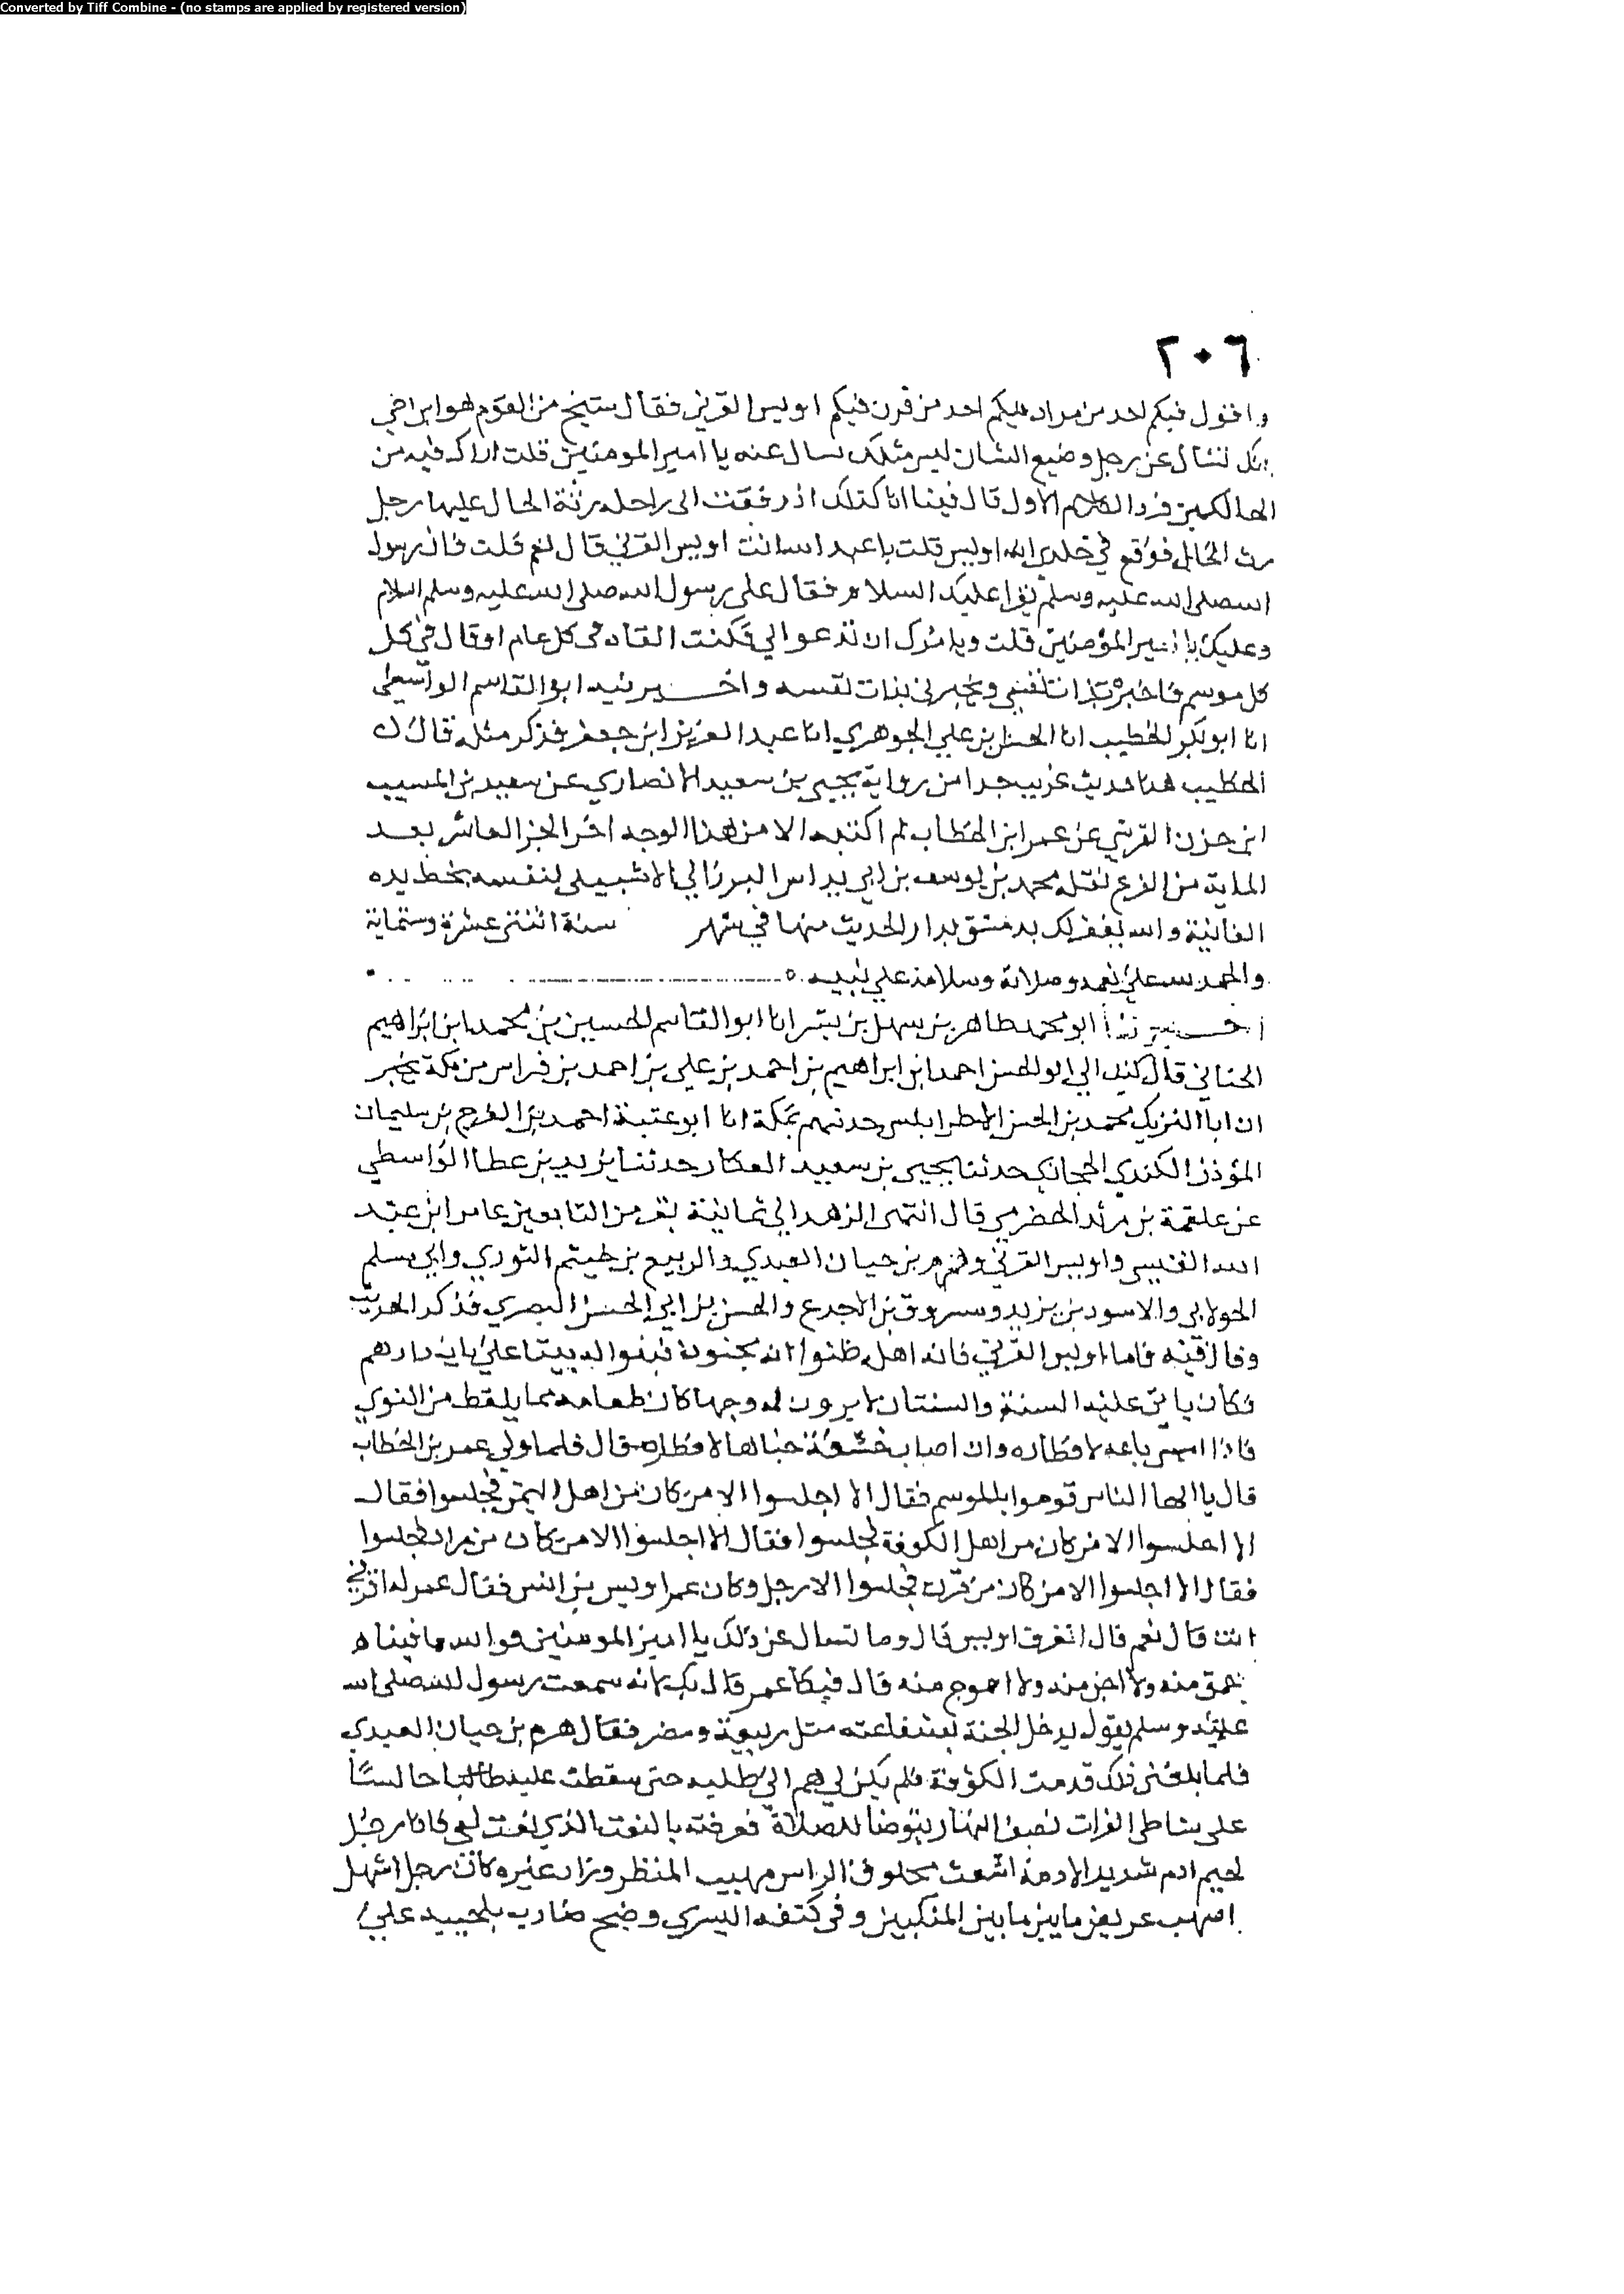 Converted by Tiff Combine - (no stamps are applied by registered version)
٢٠٦
واقول فيكم احد من مراد فيكم احد من قرن فيكم اويس القرني فقال شيخ من القوم هو ابن اخي
انك تسال عن رجل وضيع الشان ليس مثلك يسال عنه يا امير المومنين قلت اراك فيه من
الهالكين فرد الكلام الاول قال فبينا انا كذلك اذ رفعت الى راحلة رثة الحال عليها رجل
رث الحال فوقع في خلدي انه اويس قلت يا عبد الله انت اويس القرني قال نعم قلت فان رسول
الله صلى الله عليه وسلم يقرا عليك السلام فقال على رسول الله صلى الله عليه وسلم السلام
وعليك يا امير المؤمنين قلت ويامرك ان تدعو لي فكنت القاه في كل عام او قال في كل
كل موسم فاخبره بذات نفسي ويخبرني بذات نفسه واخبرنيه ابو القاسم الواسطي
انا ابو بكر الخطيب انا الحسن بن علي الجوهري انا عبد العزيز ابن جعفر فذكر مثله قال
الخطيب هذا حديث غريب جدا من رواية يحيى بن سعيد الانصاري عن سعيد بن المسيب
ابن حزن القرشي عن عمر ابن الخطاب لم اكتبه الا من هذا الوجه اخر الجز العاشر بعد
الماية من الفرع نقله محمد بن يوسف بن ابي يداس البرزالي الاشبيلي لنفسه بخط يده
الفانية والله يغفر لك بدمشق بدار الحديث منها في شهر سنة اثنتي عشرة وستماية
والحمد لله على نعمه وصلاته وسلامه على نبيه
اخبرنا ابو محمد طاهر بن سهل بن بشر انا ابو القاسم الحسين بن محمد ابن ابراهيم
الحنائي قال كتب الي ابو الحسن احمد ابن ابراهيم بن احمد بن علي بن احمد بن فراس من مكة يخبر
ان ابا محمد بن الحسن الاطرابلسي حدثهم بمكة انا ابو عتبة احمد بن الفرج بن سليمان
المؤذن الكندي الحجازي حدثنا يحيى بن سعيد العطار حدثنا يزيد بن عطا الواسطي
عن علقمة بن مرثد الحضرمي قال انتهى الزهد الى ثمانية نفر من التابعين عامر ابن عبد
الله القيسي واويس القرني وهرم بن حيان العبدي والربيع بن خيثم الثوري وابي مسلم
الخولاني والاسود بن يزيد ومسروق بن الاجدع والحسن بن ابي الحسن البصري فذكر الحديث
وقال فيه فاما اويس القرني فانه اهله ظنوا انه مجنون فبنوا له بيتا على باب دارهم
فكان ياتي عليه السنة والسنتان لا يرون له وجها كان طعامه مما يلقط من النوي
فاذا امسى باعه لافطاره وان اصاب حشفة خباها لافطاره قال فلما ولي عمر بن الخطاب
قال يا ايها الناس قوموا بالموسم فقال الا اجلسوا الا من كان من اهل اليمن فجلسوا فقال
الا اجلسوا الا من كان من اهل الكوفة فجلسوا فقال الا اجلسوا الا من كان من مراد فجلسوا
فقال الا اجلسوا الا من كان من قرن فجلسوا الا رجل وكان عم اويس بن انس فقال عمر له اقرني
انت قال نعم قال اتعرف اويس قال وما تسال عن ذلك يا امير المومنين فوالله ما فينا
احمق منه ولا اجن منه ولا احوج منه قال فبكا عمر قال بك لا به سمعت رسول الله صلى الله
عليه وسلم يقول يدخل الجنة بشفاعته مثل ربيعة ومضر فقال هرم بن حيان العبدي
فلما بلغني ذلك قدمت الكوفة فلم يكن لي هم الا طلبه حتى سقطت عليه جالسا
على شاطي الفرات نصف النهار يتوضا للصلاة فعرفته بالنعت الذي نعت لي فاذا رجل
لحيم ادم شديد الادمة اشعث محلوق الراس مهيب المنظر وزاد غيره كان رجل اشهل
اصهب عريض ما بين ما بين المنكبين وفي كتفه اليسري وضح ضارب بلحيته علي